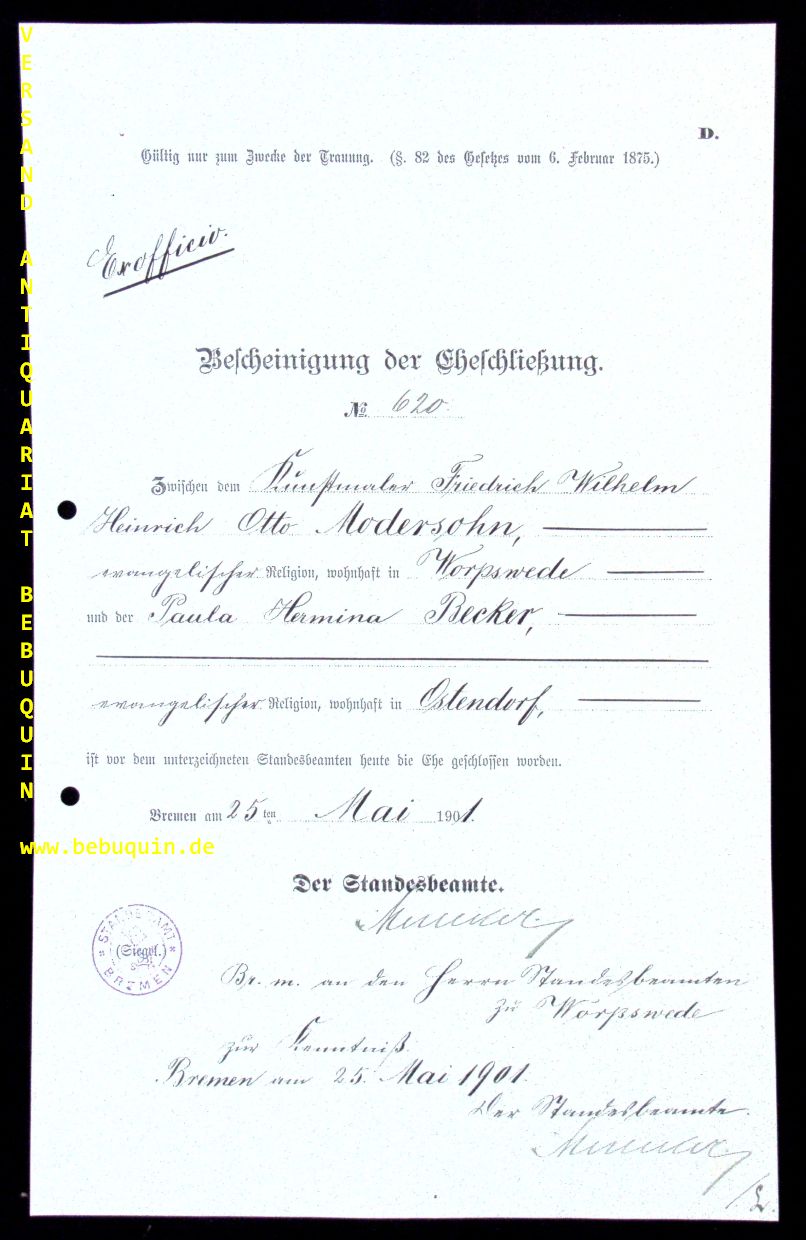 VERSAND ANTIQUARIAT BEBUQUIN
www.bebuquin.de
D.
Gültig nur zum Zwecke der Trauung. (§. 82 des Gesetzes vom 6. Februar 1875.)
Exofficio.
Bescheinigung der Eheschließung.
№ 620.
Zwischen dem Kunstmaler Friedrich Wilhelm
Heinrich Otto Modersohn,
evangelischer Religion, wohnhaft in Worpswede
und der Paula Hermina Becker,
evangelischer Religion, wohnhaft in Ostendorf,
ist vor dem unterzeichneten Standesbeamten heute die Ehe geschlossen worden.
Bremen am 25ten Mai 1901.
Der Standesbeamte.
STANDESAMT
(Siegel.)
BREMEN
Br. m. an den Herrn Standesbeamten
zu Worpswede
zur Kenntniß.
Bremen am 25. Mai 1901.
Der Standesbeamte.